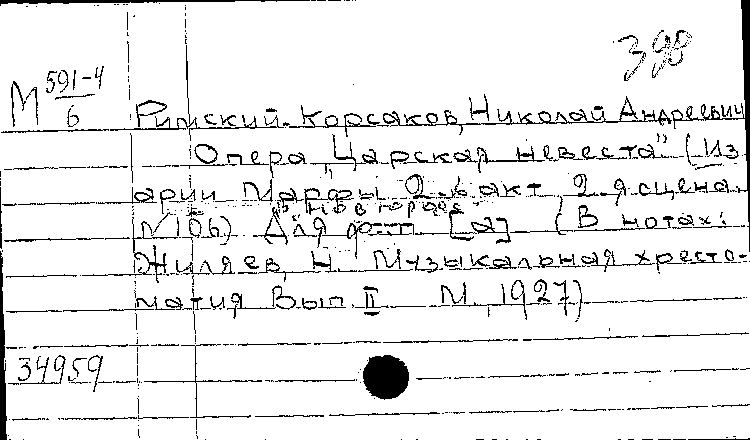 398
М 591-4
6
Римский-Корсаков, Николай Андреевич
Опера „Царская невеста". (Из
арии Марфы 2-й акт 2-я сцена.
„В Новгороде"
N 106) Для ф-п. [а] (В нотах:
Жиляев, Н. Музыкальная хресто-
матия Вып. II М., 1927)
34959